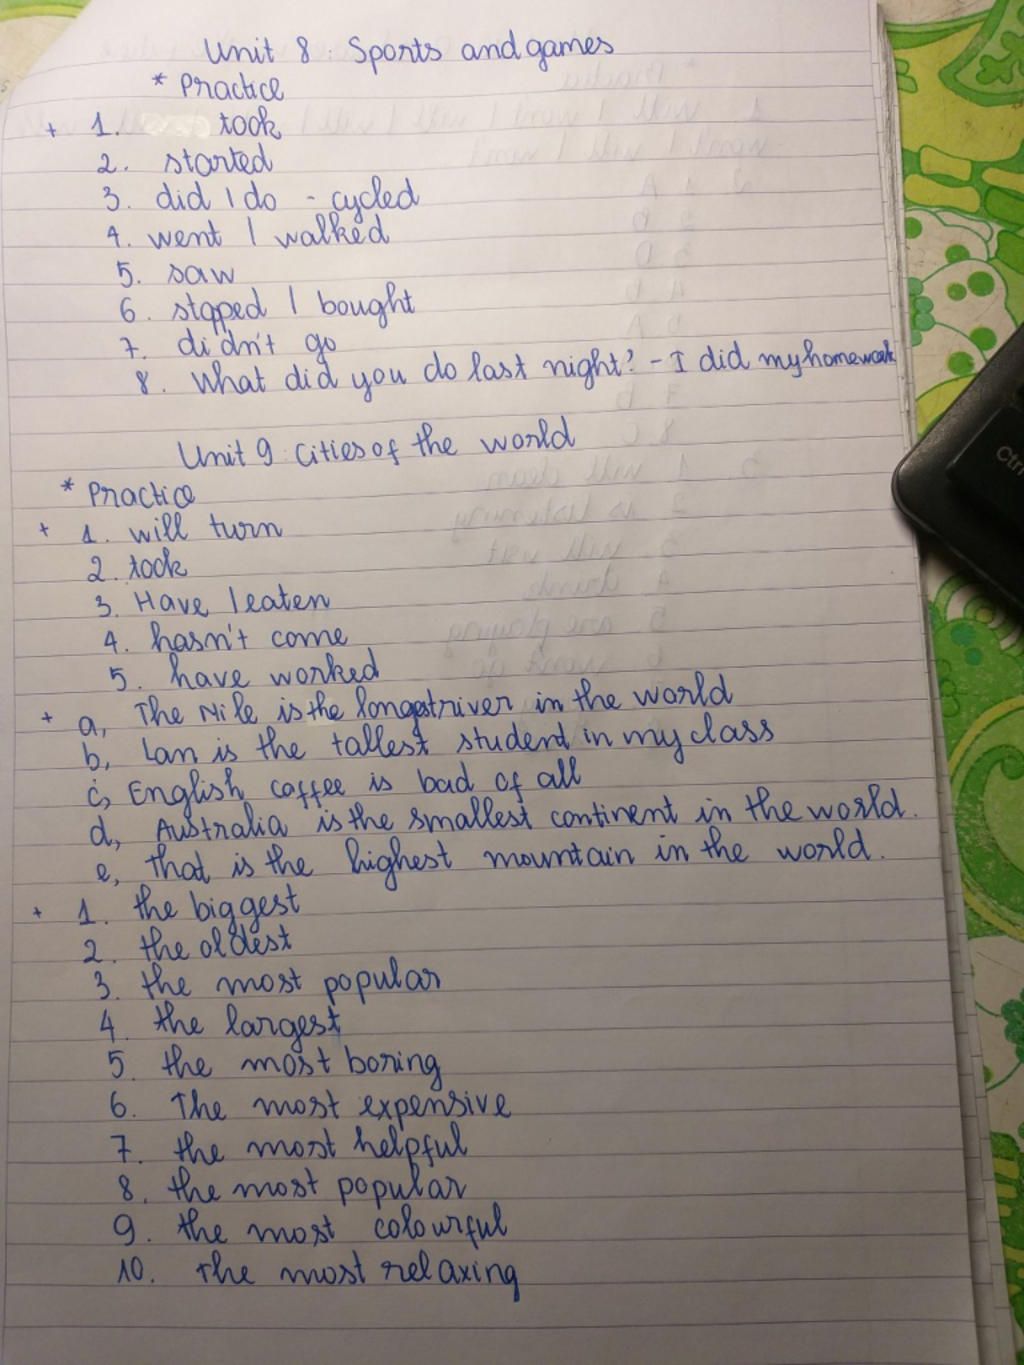 Unit 8: Sports and games
* Practice
+ 1. took
2. started
3. did / do - cycled
4. went / walked
5. saw
6. stopped / bought
7. didn't go
8. What did you do last night? - I did my homework
Unit 9: Cities of the world
* Practice
+ 1. will turn
2. took
3. Have / eaten
4. hasn't come
5. have worked
+ a, The Nile is the longest river in the world
b, Lan is the tallest student in my class
c, English coffee is bad of all
d, Australia is the smallest continent in the world.
e, That is the highest mountain in the world.
+ 1. the biggest
2. the oldest
3. the most popular
4. the largest
5. the most boring
6. The most expensive
7. the most helpful
8. the most popular
9. the most colourful
10. The most relaxing
Ctrl